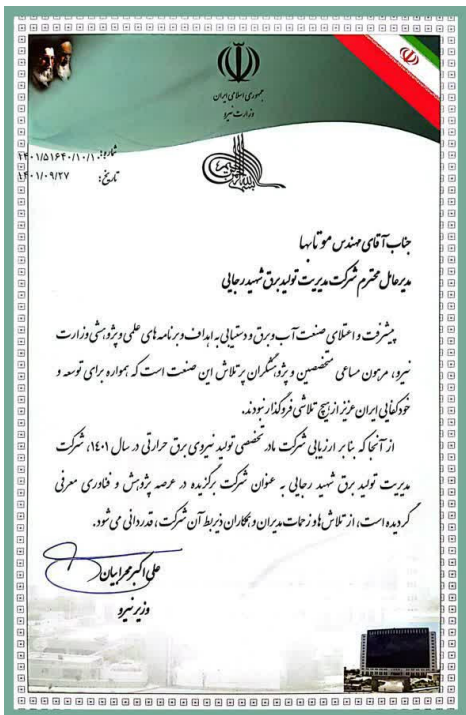 جمهوری اسلامی ایران
وزارت نیرو
شماره: ۱۴۰۱/۵۱۶۴۰/۱۰/۱۰
تاریخ: ۱۴۰۱/۰۹/۲۷
جناب آقای مهندس موتابها
مدیرعامل محترم شرکت مدیریت تولید برق شهید رجایی
پیشرفت و اعتلای صنعت آب و برق و دستیابی به اهداف و برنامه های علمی و پژوهشی وزارت
نیرو، مرهون مساعی متخصصین و پژوهشگران پرتلاش این صنعت است که همواره برای توسعه و
خودکفایی ایران عزیز از هیچ تلاشی فروگذار نبودند.
از آنجا که بنابر ارزیابی شرکت مادر تخصصی تولید نیروی برق حرارتی در سال ۱۴۰۱، شرکت
مدیریت تولید برق شهید رجایی به عنوان شرکت برگزیده در عرصه پژوهش و فناوری معرفی
گردیده است، از تلاش ها و زحمات مدیران و همکاران ذیربط آن شرکت، قدردانی می شود.
علی اکبر محرابیان
وزیر نیرو